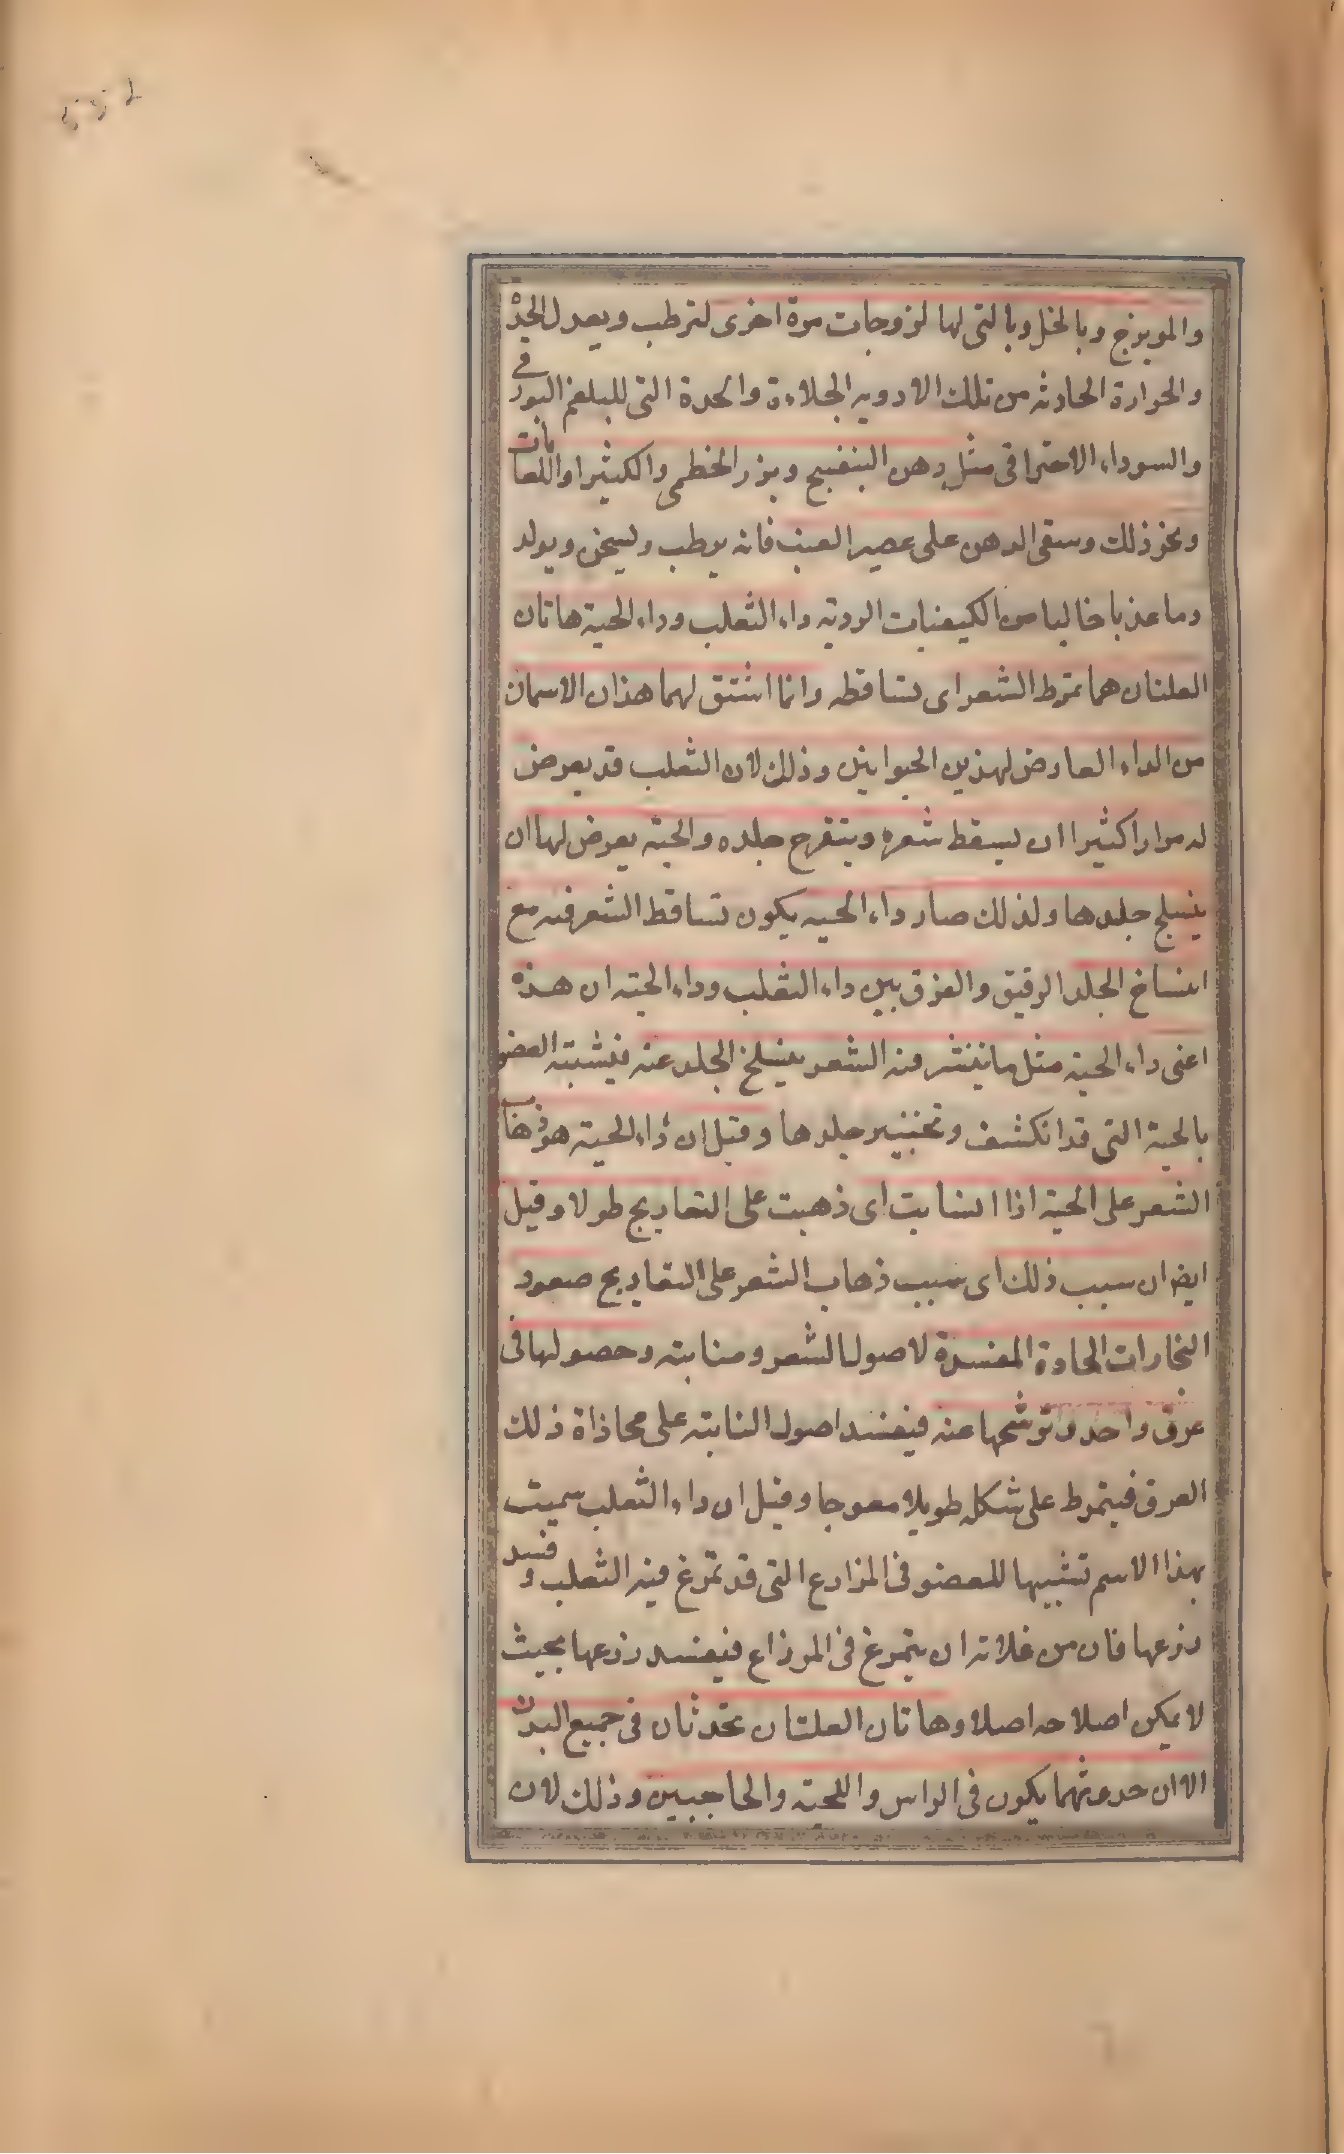 والمويزج وبالخل وبالتى لها لزوجات مرة اخرى لترطب ويعدل الحدة
والحرارة الحادثه من تلك الادويه الجلاءة والحدة التى للبلغم البورقى
والسوداء الاحتراقى مثل دهن البنفسج وبزر الخطمى والكثيرا واللعابات
ونحو ذلك وسقى الدهن على عصير العنب فانه يرطب ويسخن ويولد
دما عذبا خاليا من الكيفيات الرديه داء الثعلب وداء الحية هاتان
العلتان هما تمرط الشعر اى تساقطه وانما اشتق لهما هذان الاسمان
من الداء العارض لهذين الحيوانين وذلك لان الثعلب قد يعرض
له مرارا كثيرا ان يسقط شعره ويتقرح جلده والحية يعرض لها ان
ينسلخ جلدها ولذلك صار داء الحيه يكون تساقط الشعر فيه مع
انسلاخ الجلد الرقيق والفرق بين داء الثعلب وداء الحية ان هذه
اعنى داء الحية مثل ما ينتثر فيه الشعر ينسلخ الجلد عنه فيشبته العضو
بالحية التى قد انكشف جلدها وقيل ان داء الحية هو ذهاب
الشعر على الحية اذا انسابت اى ذهبت على التعاريج طولا وقيل
ايض ان سبب ذلك اى سبب ذهاب الشعر على التعاريج صعود
البخارات الحادة المفسدة لاصول الشعر ومنابته وحصولها فى
عرق واحد وترشحها عنه فيفسد اصول النابته على محاذاة ذلك
العرق فيتمرط على شكله طويلا معوجا وقيل ان داء الثعلب سميت
بهذا الاسم تشبيها للعضو فى المزارع التى قد تمرغ فيه الثعلب وفسد
زرعها فان من غلاته ان يتمرغ فى المرزاع فيفسد زرعها بحيث
لا يمكن اصلاحه اصلا وهاتان العلتان تحدثان فى جميع البدن
الا ان حدوثهما يكون فى الراس واللحية والحاجبين وذلك لان